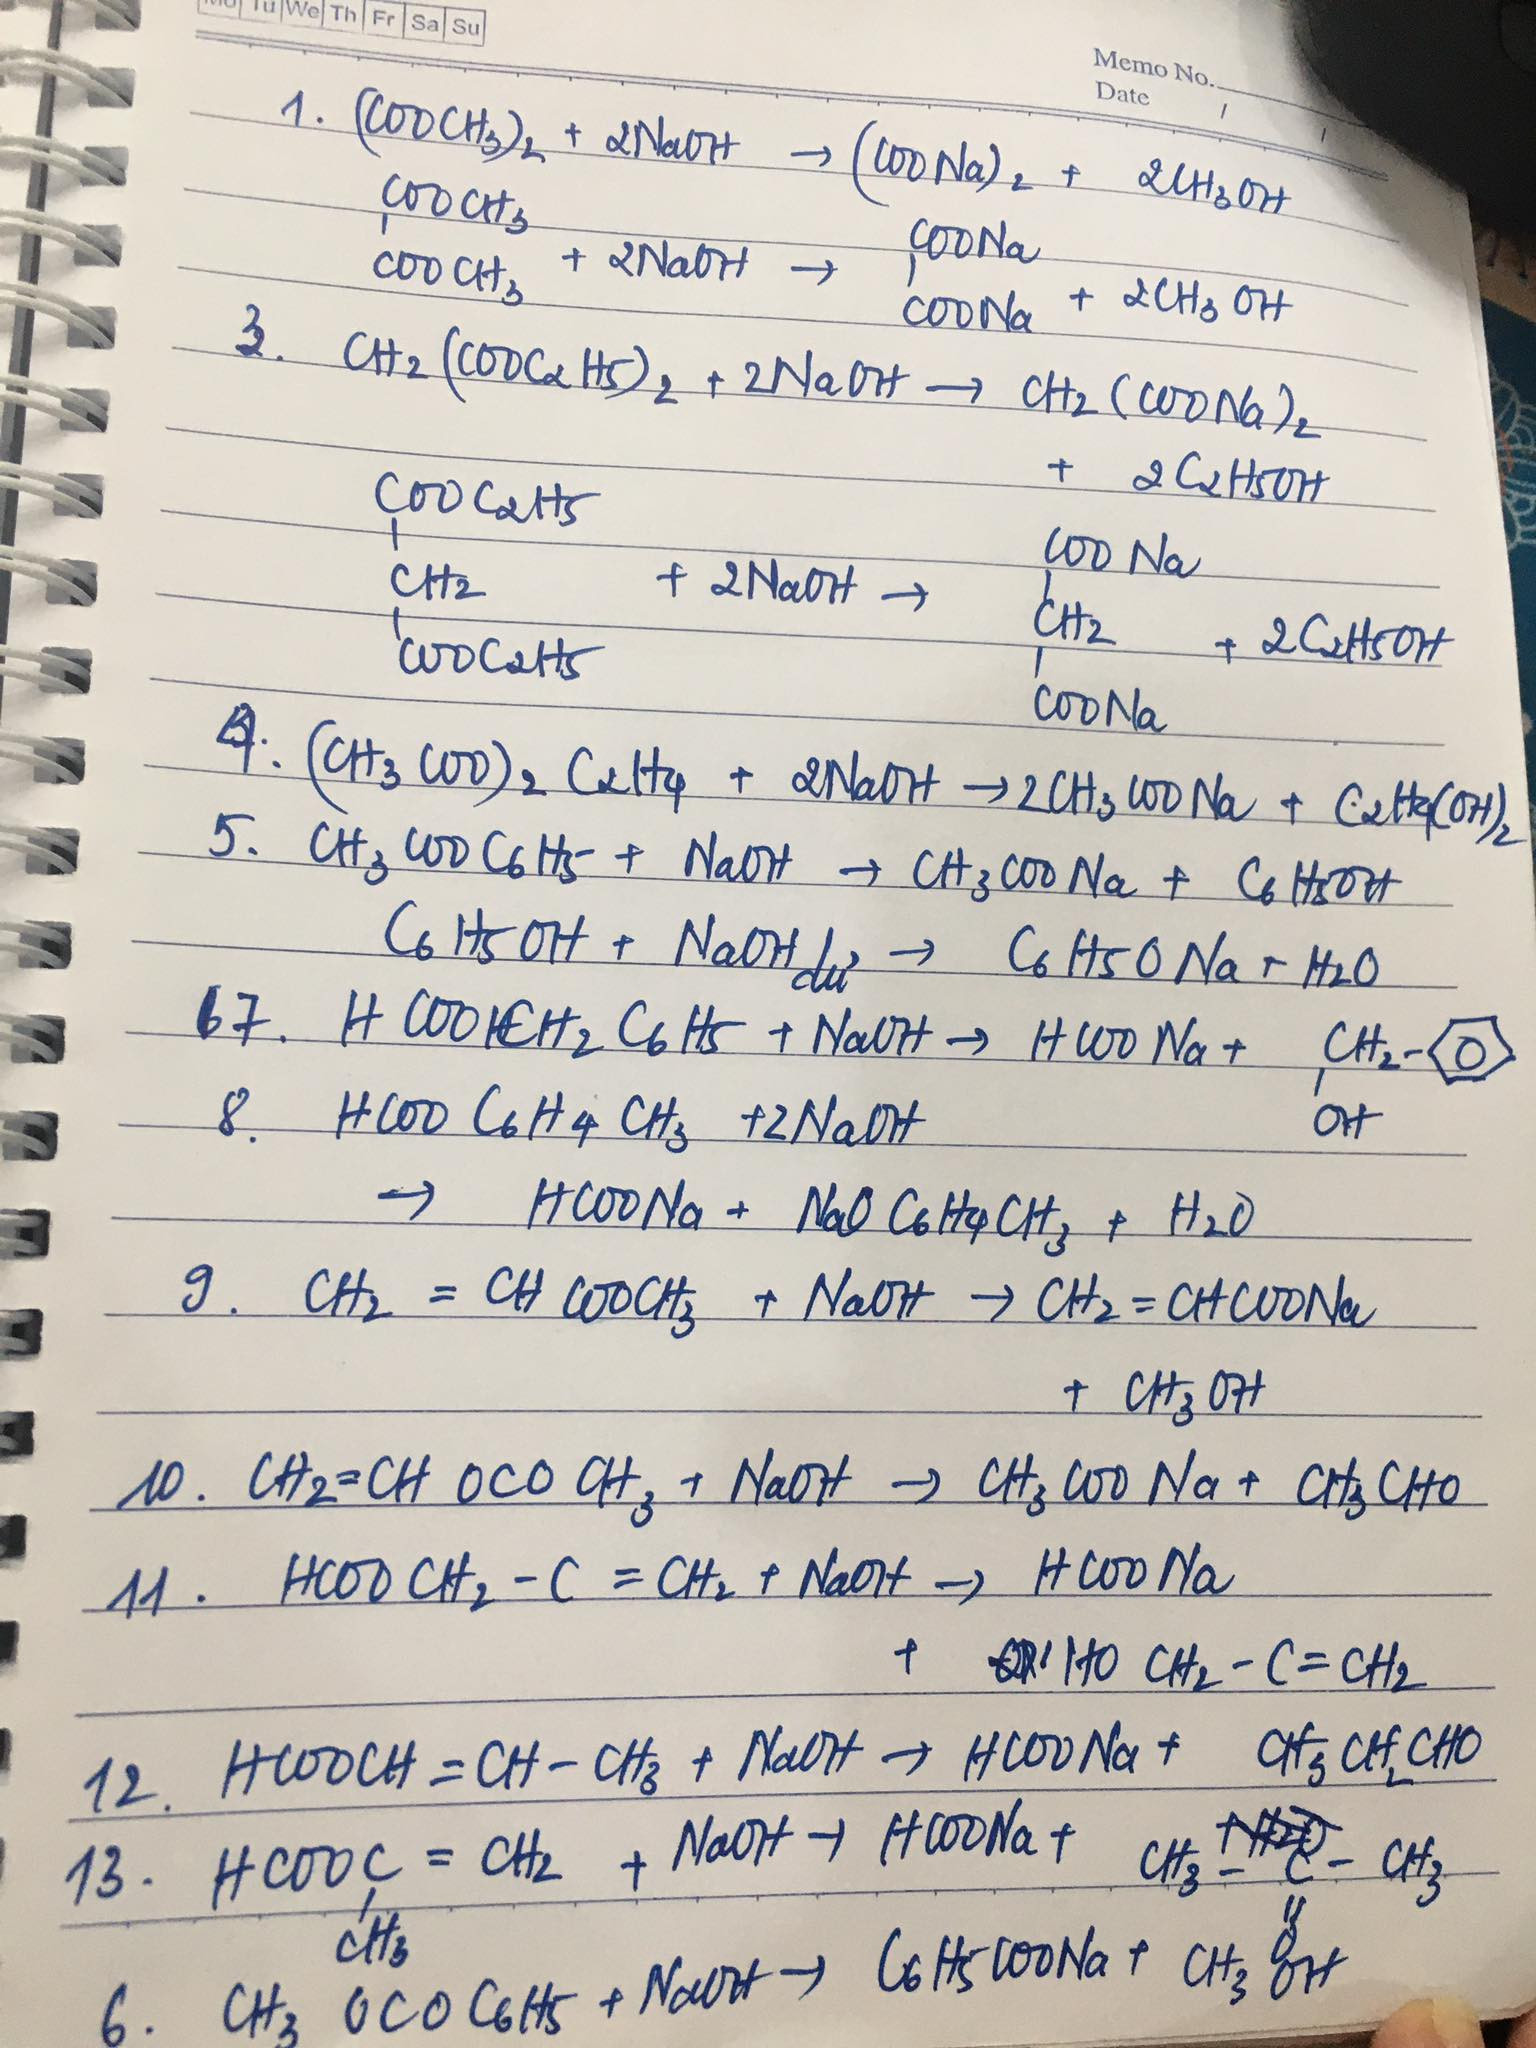 Mo Tu We Th Fr Sa Su
Memo No.
Date / /
1. (COOCH3)2 + 2NaOH → (COONa)2 + 2CH3OH
COOCH3 COONa
| + 2NaOH → |
COOCH3 COONa + 2CH3OH
3. CH2(COOC2H5)2 + 2NaOH → CH2(COONa)2
+ 2C2H5OH
COOC2H5 COONa
| |
CH2 + 2NaOH → CH2 + 2C2H5OH
| |
COOC2H5 COONa
4. (CH3COO)2C2H4 + 2NaOH → 2CH3COONa + C2H4(OH)2
5. CH3COOC6H5 + NaOH → CH3COONa + C6H5OH
C6H5OH + NaOH dư → C6H5ONa + H2O
7. HCOOCH2C6H5 + NaOH → HCOONa + CH2-
|
OH
8. HCOOC6H4CH3 + 2NaOH
→ HCOONa + NaOC6H4CH3 + H2O
9. CH2=CHCOOCH3 + NaOH → CH2=CHCOONa
+ CH3OH
10. CH2=CHOCOCH3 + NaOH → CH3COONa + CH3CHO
11. HCOOCH2-C=CH2 + NaOH → HCOONa
+ HOCH2-C=CH2
12. HCOOCH=CH-CH3 + NaOH → HCOONa + CH3CH2CHO
13. HCOOC=CH2 + NaOH → HCOONa + CH3-C-CH3
| ||
CH3 O
6. CH3OCOC6H5 + NaOH → C6H5COONa + CH3OH